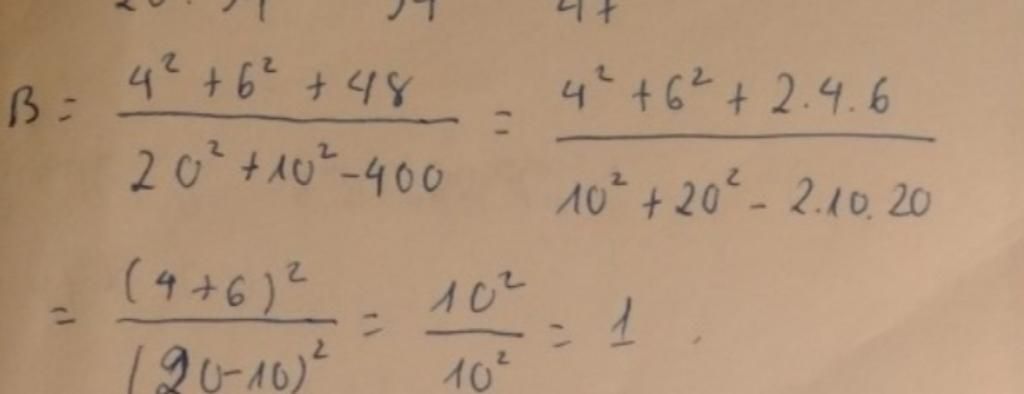 B = (4² + 6² + 48) / (20² + 10² - 400) = (4² + 6² + 2.4.6) / (10² + 20² - 2.10.20)
= (4+6)² / (20-10)² = 10² / 10² = 1.